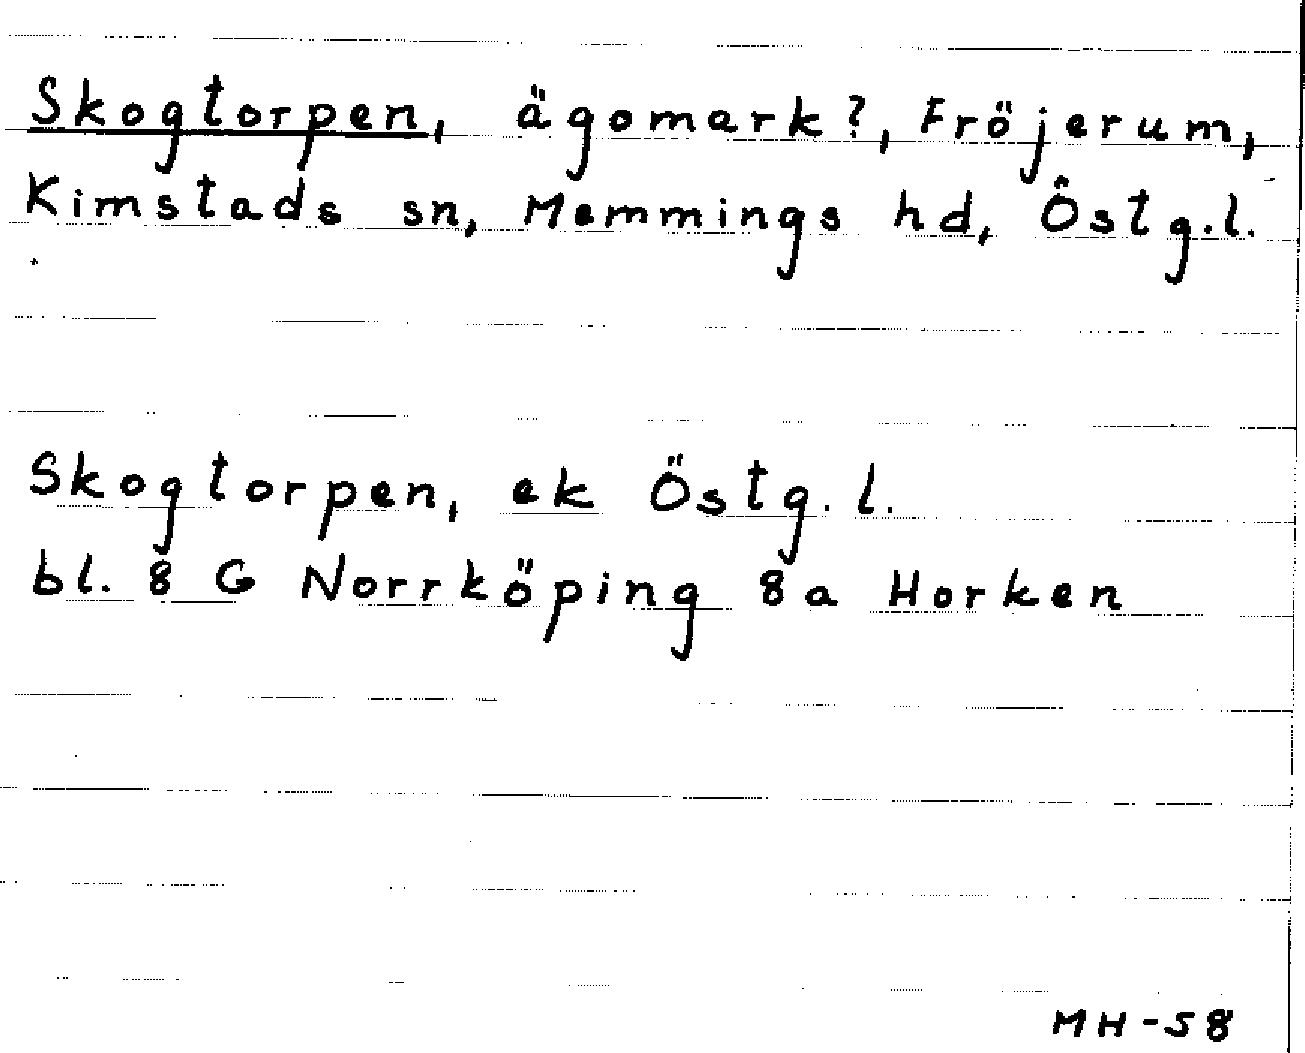 Skogtorpen, ägomark?, Fröjerum,
Kimstads sn, Memmings hd, Östg.l.
Skogtorpen, ek Östg.l.
bl. 8 G Norrköping 8a Horken
MH-58